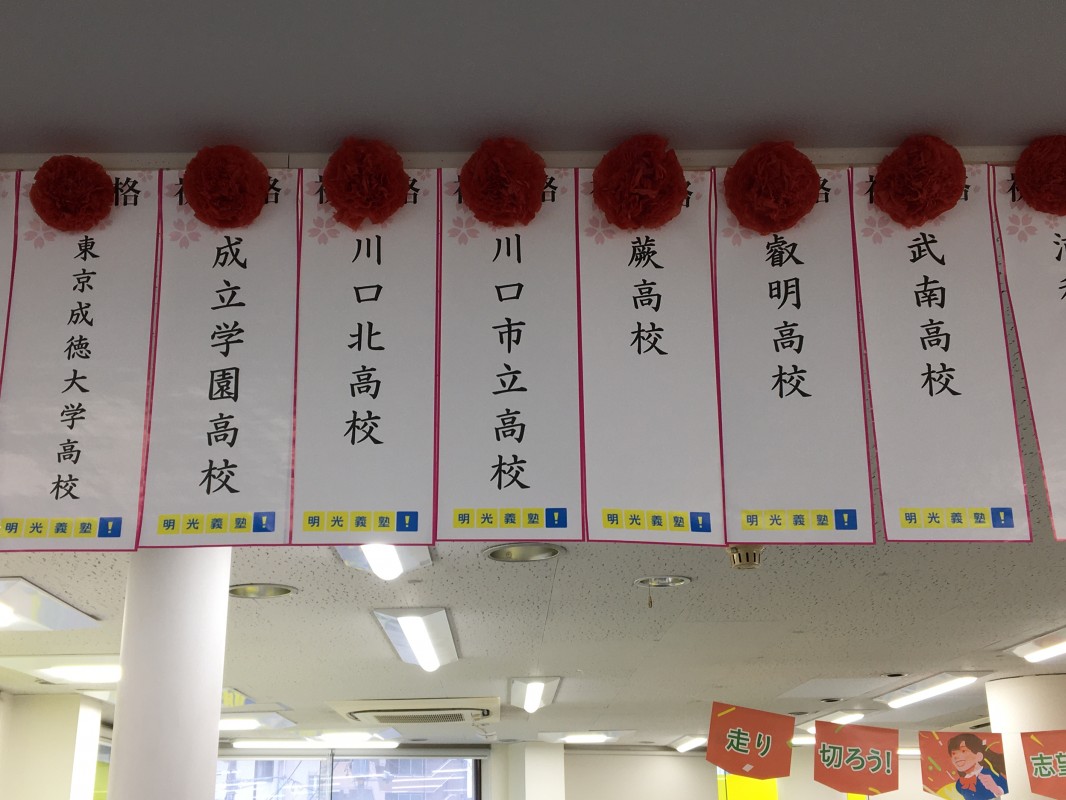 格
東京成徳大学高校
明光義塾!
成立学園高校
明光義塾!
川口北高校
明光義塾!
格
川口市立高校
明光義塾!
蕨高校
明光義塾!
叡明高校
明光義塾!
武南高校
明光義塾!
走り
切ろう!
志望